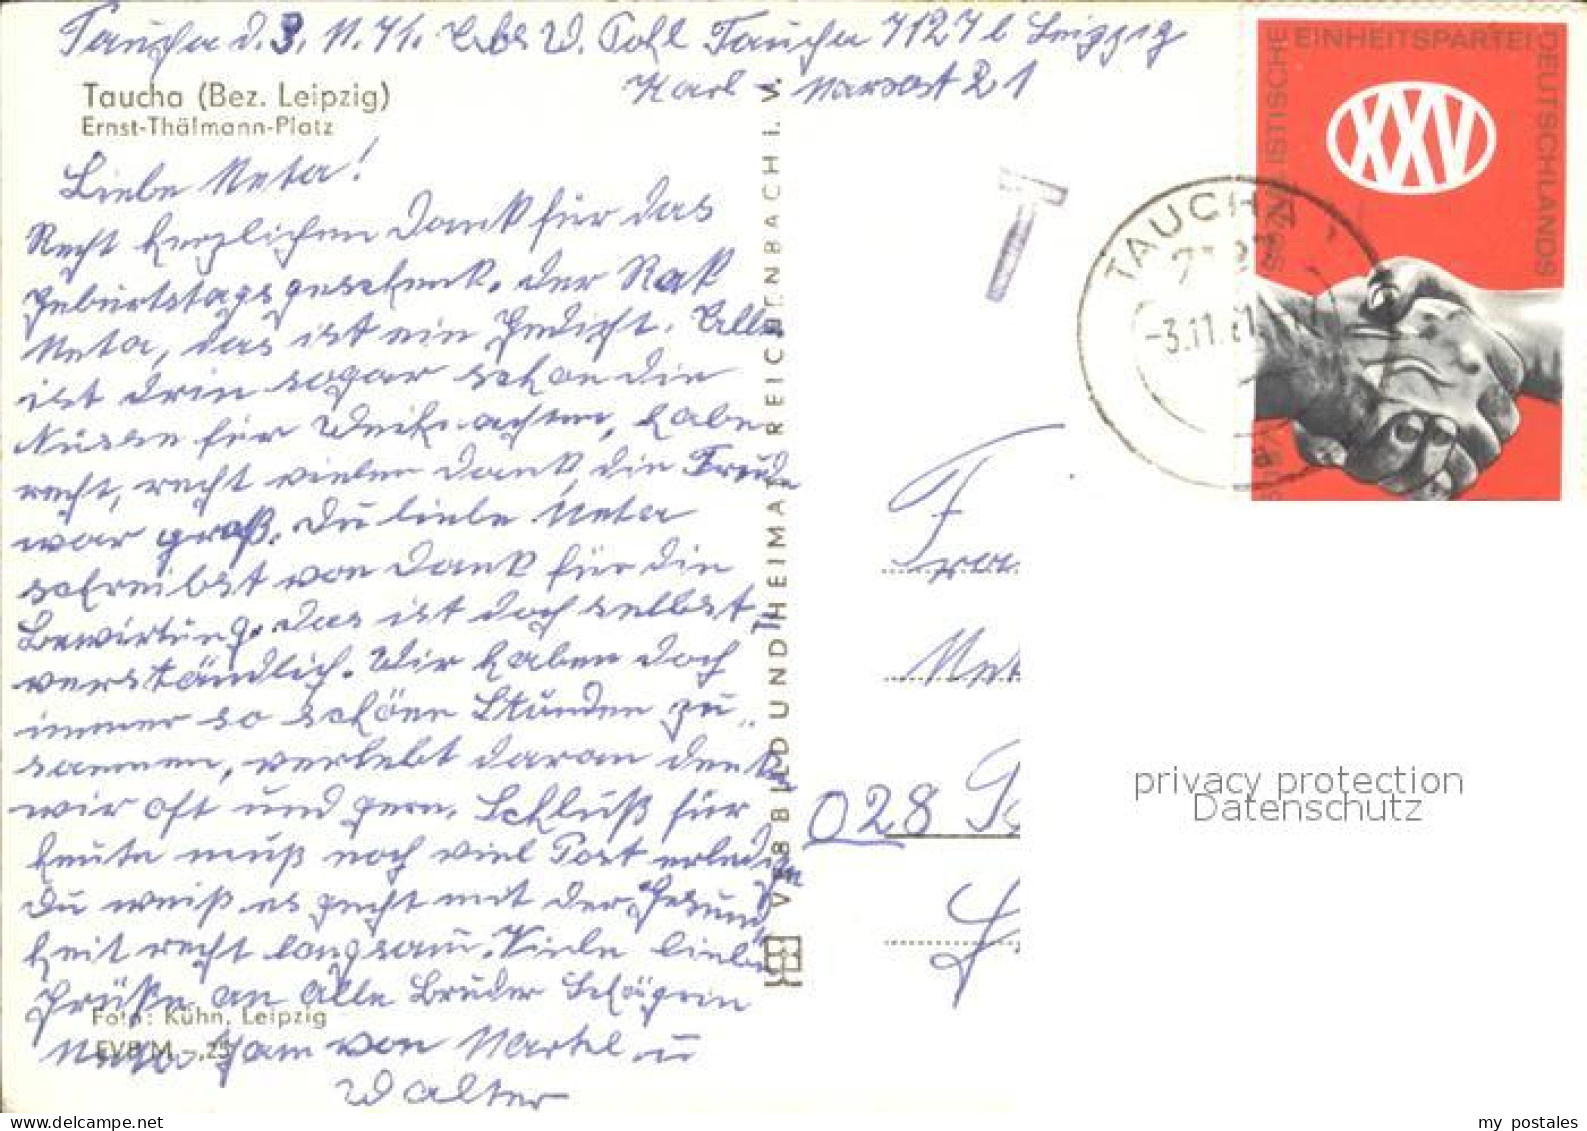 Taucha d. 3. 11. 71. Abs W. Pohl Taucha 7127 b Leipzig
Karl - Marxst 21
Taucha (Bez. Leipzig)
Ernst-Thälmann-Platz
Liebe Meta!
Recht herzlichen Dank für das
Geburtstagsgeschenk. der
Meta, das ist ein Gedicht. Alles
ist drin sogar schon die
Nüsse für Weihnachten, habe
recht, recht vielen Dank, die Freude
war groß. Du liebe Meta
schreibst von Dank für die
Bewirtung. Das ist doch selbst
verständlich. Wir haben doch
immer so schöne Stunden zu
sammen, verlebt daran denken
wir oft und gern. Schluß für
heute muß noch viel Post erledigen
Du weißt es geht mit der Gesund
heit recht langsam. Viele liebe
Grüße an Alle Bruder Schwägerin
von u
Walter
Foto: Kühn, Leipzig
VEB BILD UND HEIMAT REICHENBACH i. V.
T
TAUCHA
-3.11.71
SOZIALISTISCHE EINHEITSPARTEI DEUTSCHLANDS
XXV
Frau
Met
028
privacy protection
Datenschutz
delcampe.net
my_postales